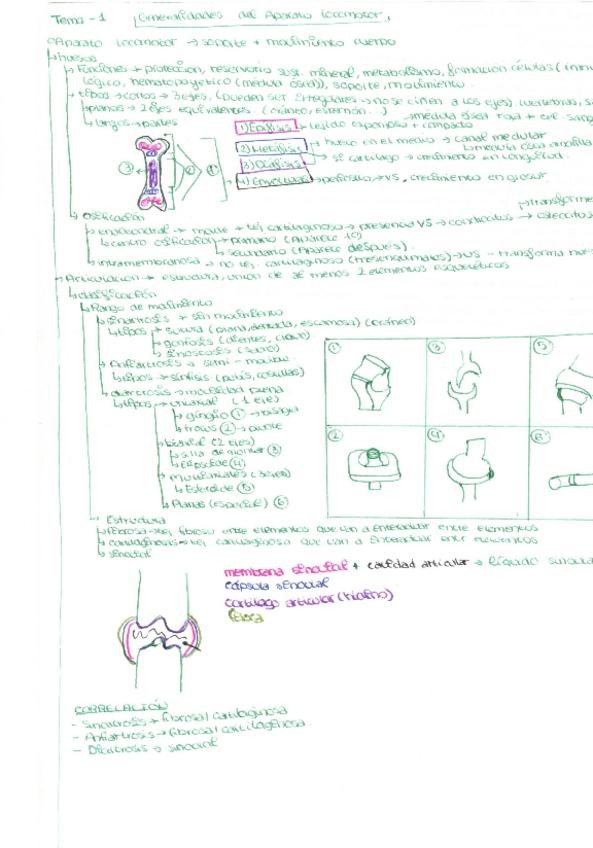 Tema - 1 Generalidades del Aparato locomotor.
Aparato locomotor → soporte + movimiento cuerpo
huesos
Funciones → protección, reservorio sust. mineral, metabolismo, formación células (inmu
lógico, hematopoyético (médula ósea)), soporte, movimiento.
tipos → cortos → 3 ejes, (pueden ser irregulares → no se ciñen a los ejes), vertebras, s
planos → 2 ejes equivalentes (cráneo, esternón...)
largos → partes
médula ósea roja +
1) Epífisis → tejido esponjoso + compacto
2) Metáfisis
hueco en el medio → canal medular
médula ósea amarilla
3) Diáfisis
cartílago → crecimiento en longitud.
4) Envoltura → periostio → VS, crecimiento en grosor
③ ② ①
transforme
Osificación
endocondral → molde + tej. cartilaginoso → presencia VS → condrocitos → osteocitos
centro osificación → primario (Aparece 1º)
secundario (Aparece después).
intramembranosa → no tej. cartilaginoso (mesenquimatos) → VS - transforma
Articulación → estructura, unión de al menos 2 elementos esqueléticos
clasificación
Rango de movimiento
sinartrosis → sin movimiento
tipos → sutura (plana, dentada, escamosa) (cráneo)
gonfosis (dientes, clavo)
sinostosis (sacro)
Anfiartrosis → semi-movible
tipos → sínfisis (pubis, costillas)
diartrosis → movilidad plena
tipos → uniaxial (1 eje)
gínglimo ① → bisagra
trocus ② → pivote
biaxial (2 ejes)
silla de montar ③
Elipsoide ④
multiaxiales (3 ejes)
Esferoide ⑤
Planas (especial) ⑥
① ③ ⑤
② ④ ⑥
Estructura
fibrosa → tej. fibroso entre elementos que van a interactuar entre elementos
cartilaginosa → tej. cartilaginosa que van a interactuar entre elementos
sinovial
membrana sinovial + cavidad articular → líquido sinovia
cápsula sinovial
cartílago articular (hialino)
fibra
CORRELACIÓN
- Sinartrosis → fibrosa / cartilaginosa
- Anfiartrosis → fibrosa / cartilaginosa
- Diartrosis → sinovial